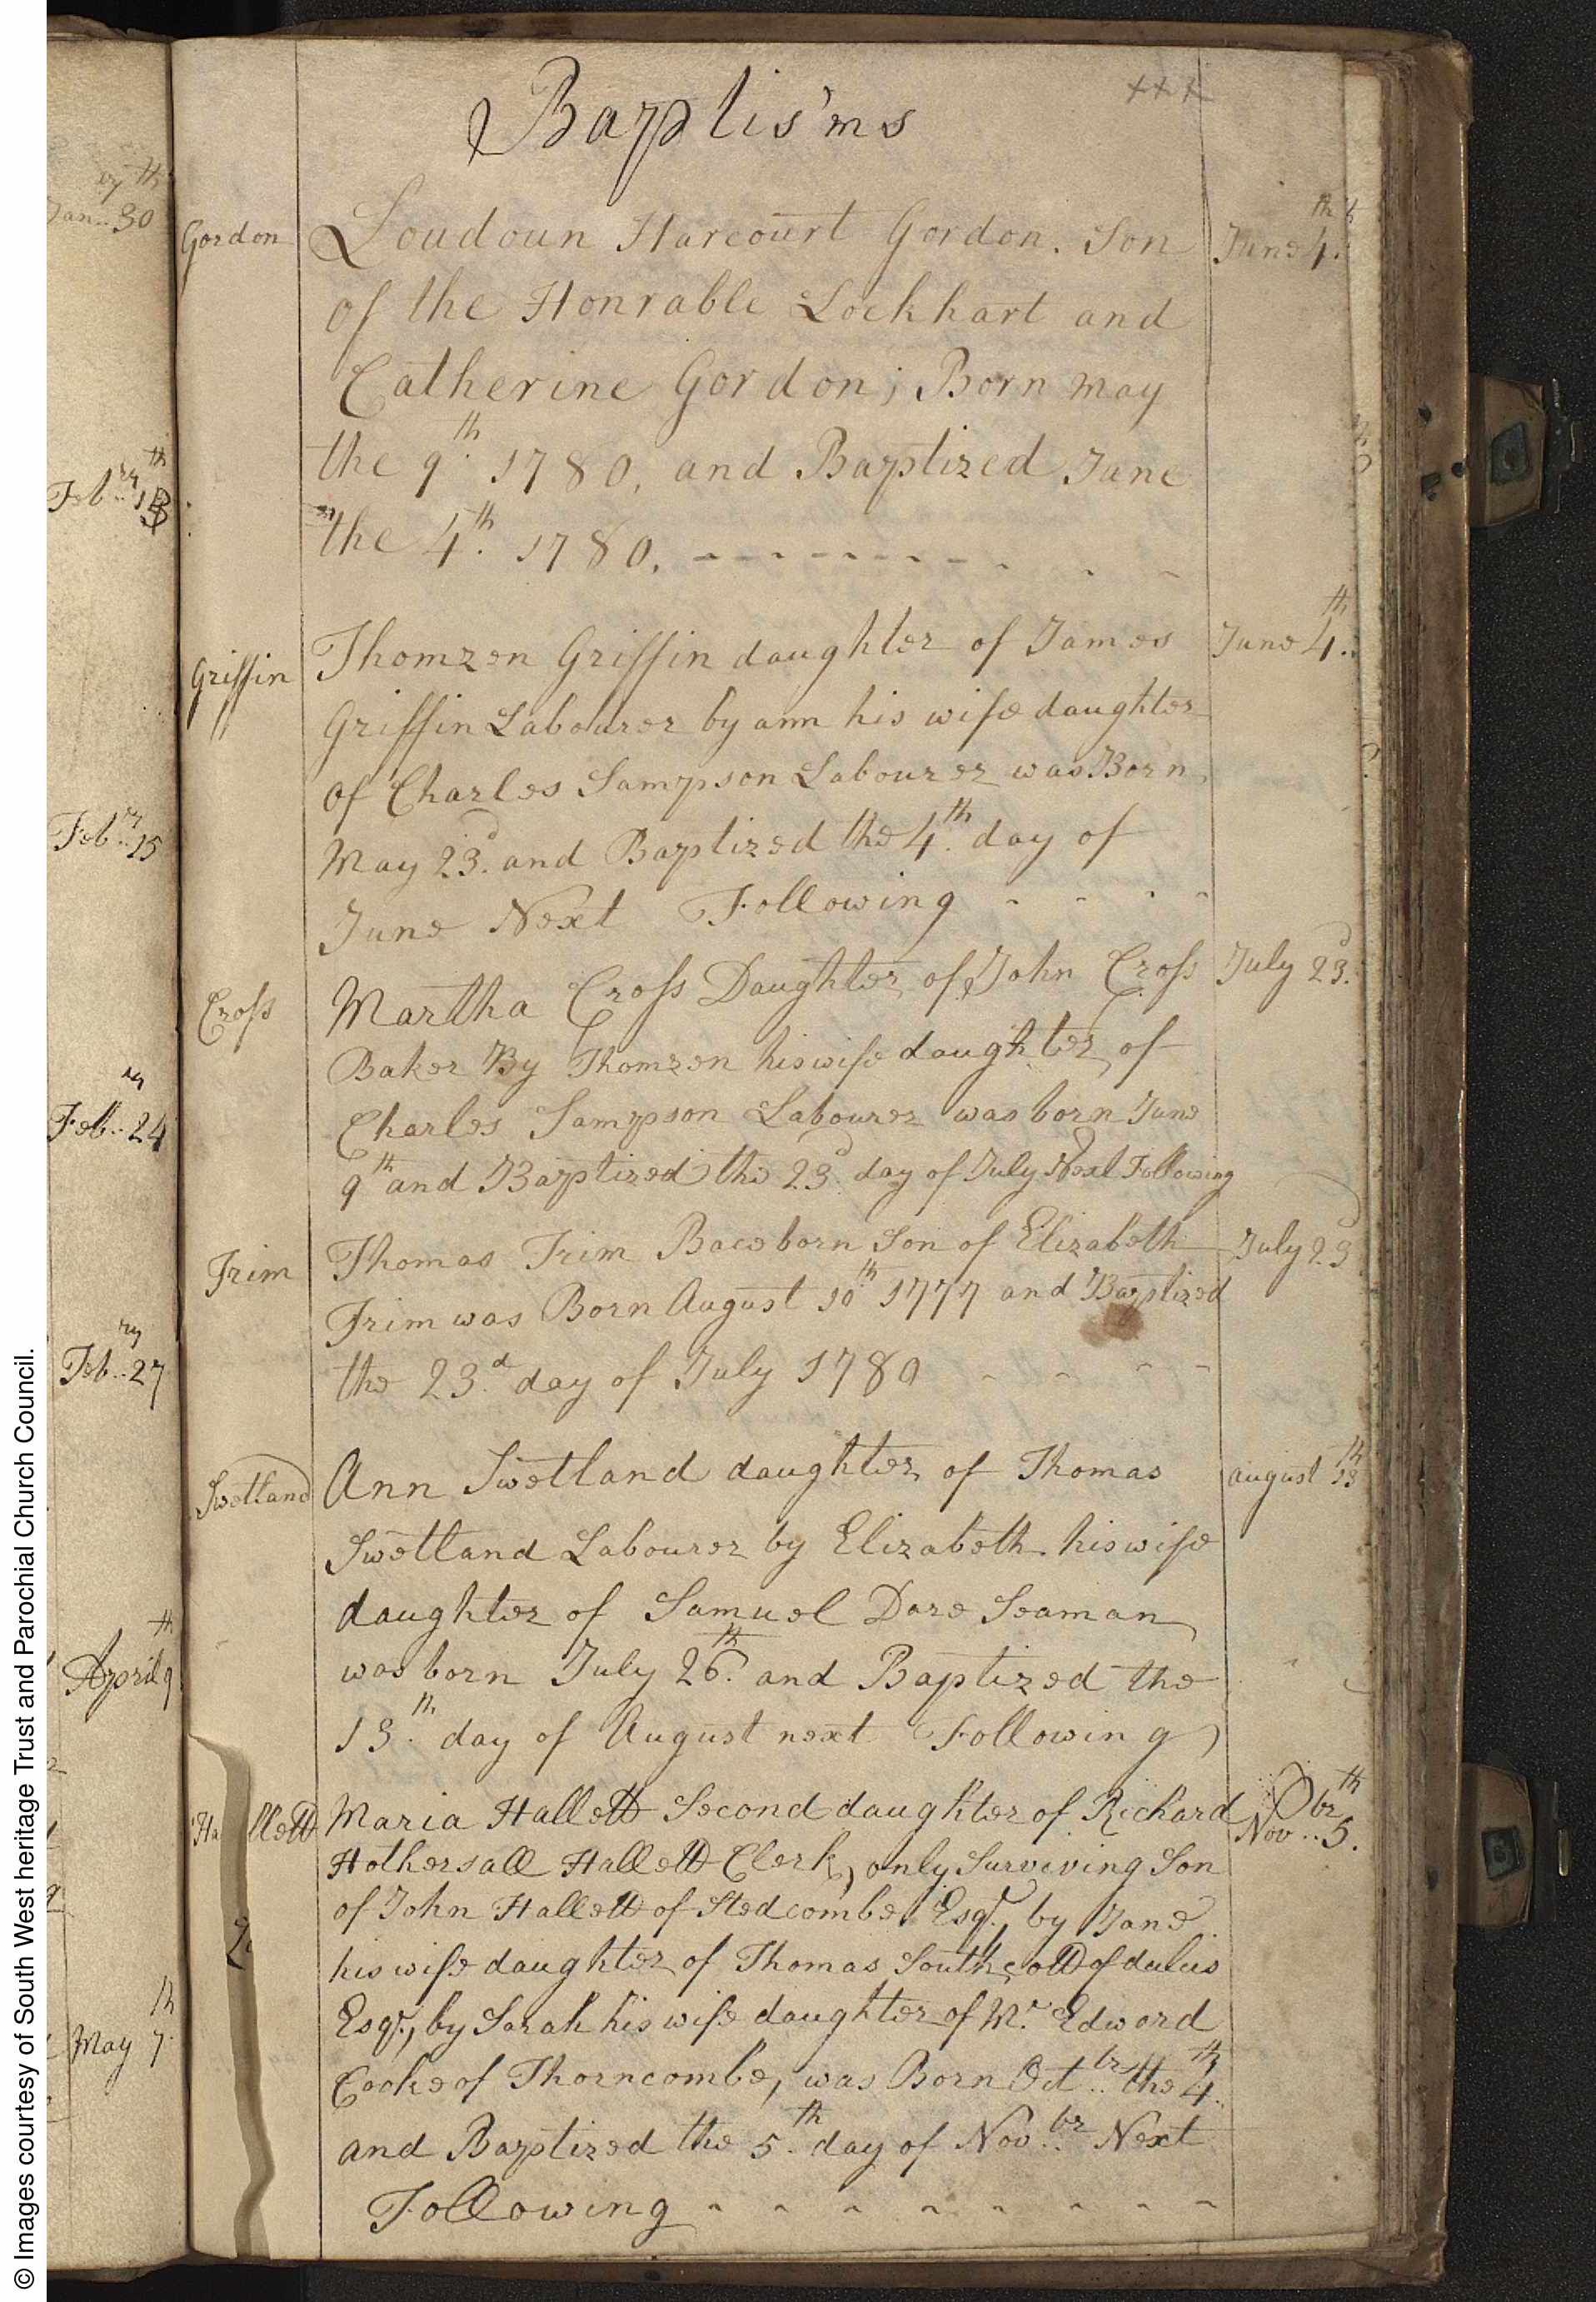 © Images courtesy of South West heritage Trust and Parochial Church Council.
ry th
Jan.. 30
Feb ry th 13
Feb ry .. 15
Feb ry .. 24
Feb ry .. 27
April 9 th
May 7 th
Baptis'ms
Gordon
Loudoun Harcourt Gordon. Son
June 4th.
of the Honrable Lockhart and
Catherine Gordon; Born may
the 9th. 1780, and Baptized June
the 4th. 1780. - - - - - - - - - - -
Griffin
Thomzen Griffin daughter of James
June 4th.
Griffin Labourer by ann his wife daughter
of Charles Sampson Labourer was Born
May 23d. and Baptized the 4th. day of
June Next Following - - - -
Cross
Martha Cross Daughter of John Cross
July 23d.
Baker By Thomzen his wife daughter of
Charles Sampson Labourer was born June
9th and Baptized the 23d. day of July Next Following
Trim
Thomas Trim Baceborn Son of Elizabeth
July 23d
Trim was Born August 10th 1777 and Baptized
the 23d. day of July 1780 - - - -
Swetland
Ann Swetland daughter of Thomas
august 13th
Swetland Labourer by Elizabeth his wife
daughter of Samuel Dare Seaman
was born July 26th. and Baptized the
13th. day of August next Following
Hallett
Maria Hallett Second daughter of Richard
Novbr.. 5th.
Hothersall Hallett Clerk, only Surviving Son
of John Hallett of Stedcombe Esqr., by Jane
his wife daughter of Thomas Southcott of dulcis
Esqr., by Sarah his wife daughter of Mr. Edword
Cooke of Thorncombe, was Born Octbr.. the 4th.
and Baptized the 5th. day of Novbr.. Next
Following - - - - - - - -